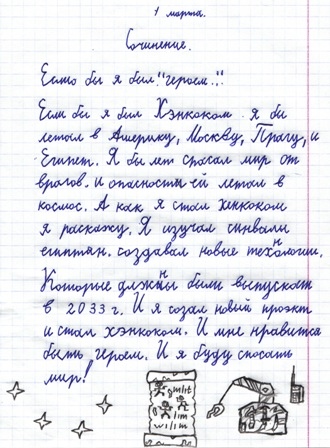 1 марта.
Сочинение.
Если бы я был "героем..."
Если бы я был Хэнкоком я бы
летал в Америку, Москву, Прагу, и
Египет. Я бы лет спасал мир от
врагов. и опастностьей летал в
космос. А как я стал хенкоком
я раскажу. Я изучал синвалы
египтян. создавал новые технологии.
Которые должны были выпускат
в 2033 г. И я созал новый проэкт
и стал хэнкоком. И мне нравитса
быть героем. И я буду спосать
мир!
gmlit
lim
wilim